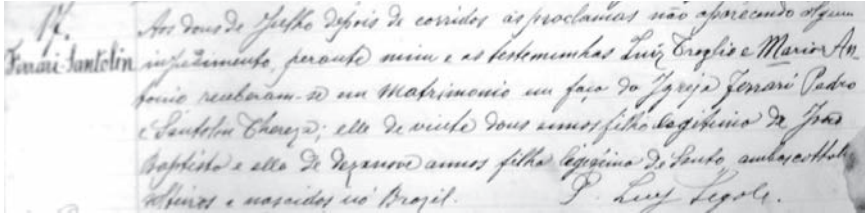 17.
Ferrari-Santolin
Aos dous de Julho depois de corridos as proclamas não aparecendo algum
impedimento, perante mim e as testemunhas Luiz Troglio e Mario An-
tonio receberam-se em matrimonio em faça da Igreja Ferrari Pedro
e Santolin Thereza; elle de vinte dous annos filho legitimo de João
Baptista e ella de dezanove annos filha legitima de Santo ambos
e nascidos no Brazil.
P. Luiz Segale.